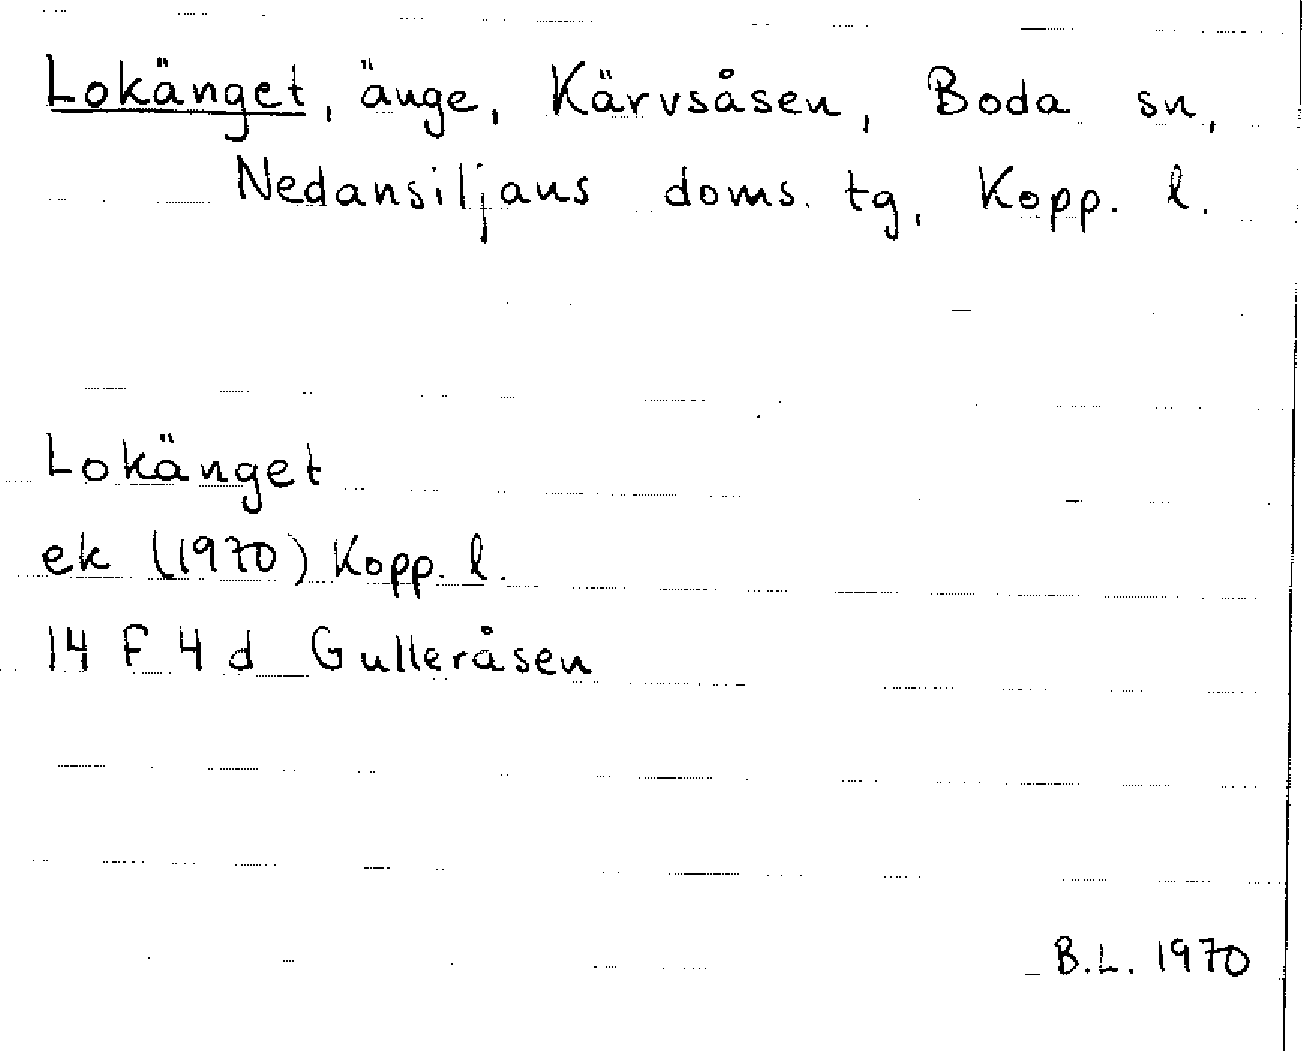 Lokänget, änge, Kärvsåsen, Boda sn,
Nedansiljans doms. tg, Kopp. l.
Lokänget
ek (1970) Kopp. l.
14 F 4 d Gulleråsen
B.L. 1970